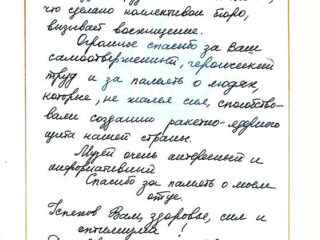 что сделано коллективом бюро,
вызывает восхищение.
Огромные спасибо за Ваш
самоотверженный, героический
труд и за память о людях,
которые, не жалея сил, способство-
вали созданию ракетно-ядерного
щита нашей страны.
Музей очень интересный и
информативный
Спасибо за память о моем
отце.
Успехов Вам, здоровье, сил и
оптимизма!